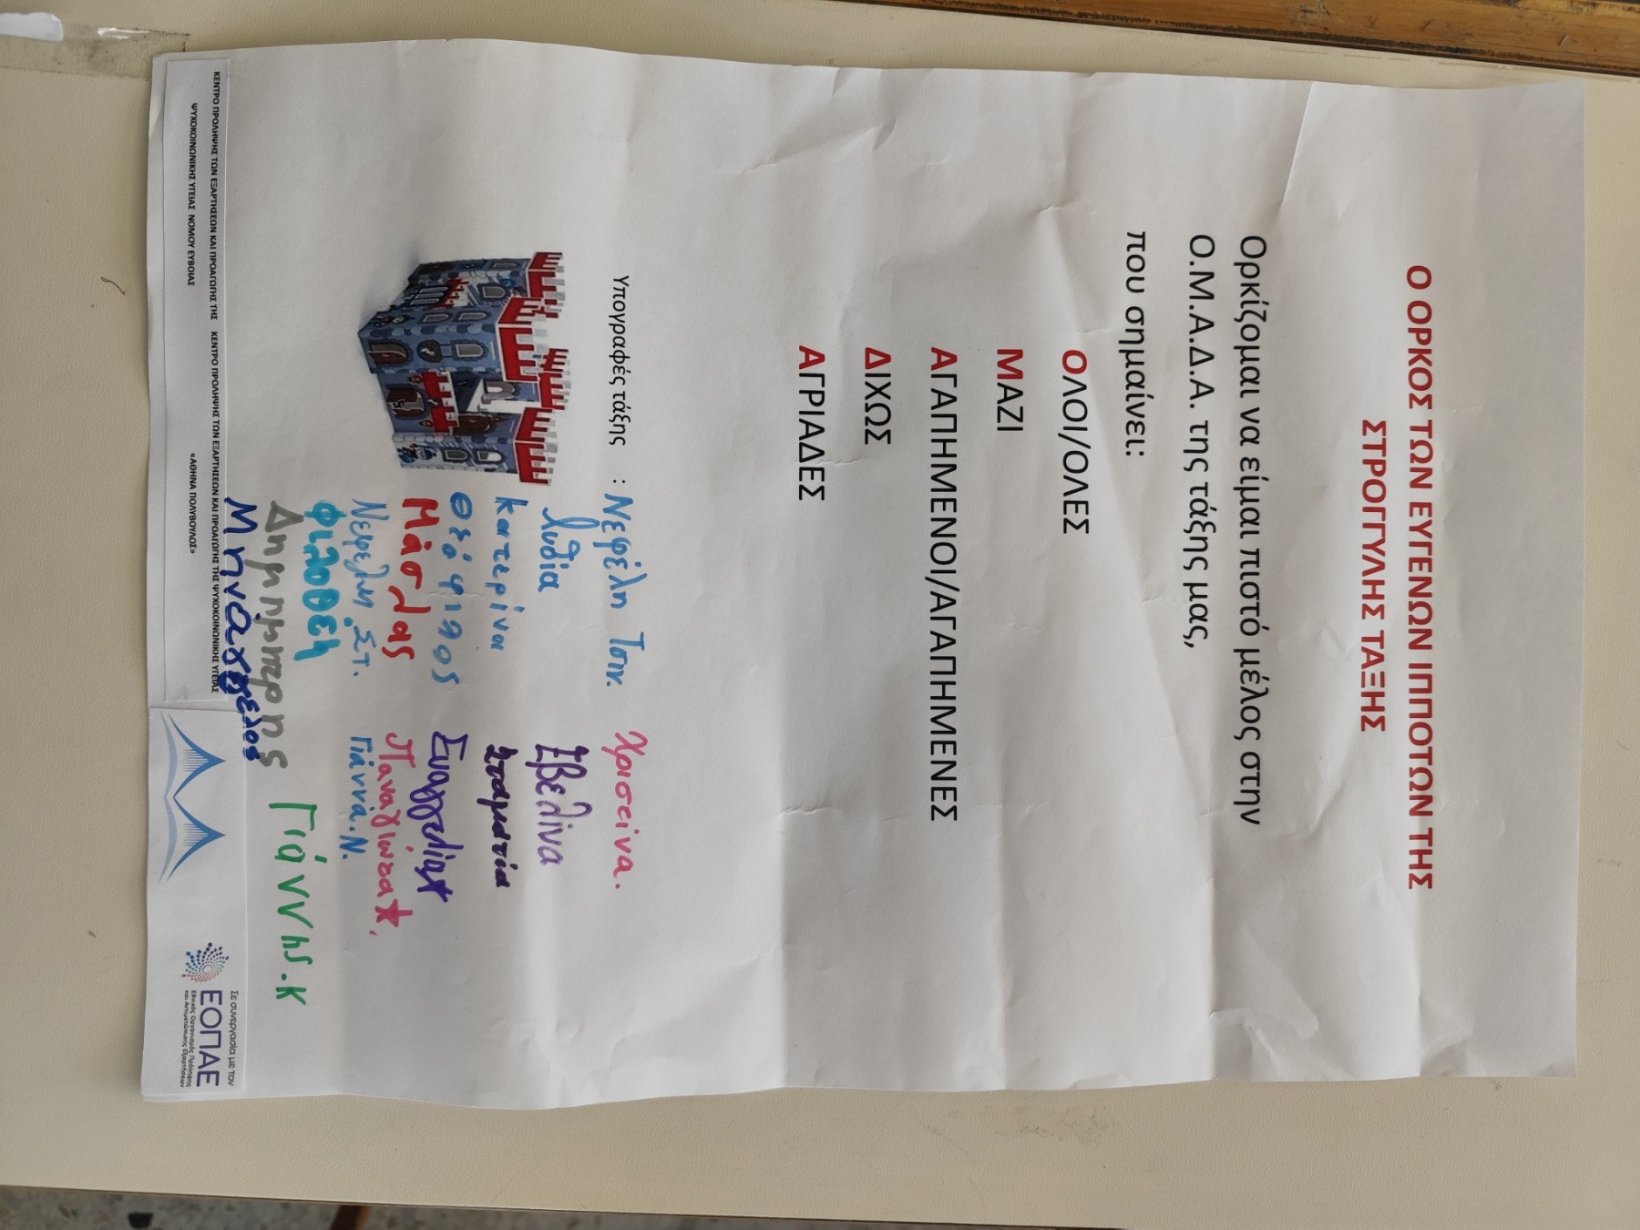 Ο ΟΡΚΟΣ ΤΩΝ ΕΥΓΕΝΩΝ ΙΠΠΟΤΩΝ ΤΗΣ
ΣΤΡΟΓΓΥΛΗΣ ΤΑΞΗΣ
Ορκίζομαι να είμαι πιστό μέλος στην
Ο.Μ.Α.Δ.Α. της τάξης μας,
που σημαίνει:
ΟΛΟΙ/ΟΛΕΣ
ΜΑΖΙ
ΑΓΑΠΗΜΕΝΟΙ/ΑΓΑΠΗΜΕΝΕΣ
ΔΙΧΩΣ
ΑΓΡΙΑΔΕΣ
Υπογραφές τάξης : Νεφέλη Τσιν. Χριστίνα.
Λυδία Εβελίνα
Κατερίνα Σταματία
Θεόφιλος Ευαγγελία
Μάσλας Παναγιώτα
Νεφέλη Στ. Γιάννα.Ν.
Φιλοθέη
Δημήτρης Γιάννης.Κ
Μηνάγγελος
ΚΕΝΤΡΟ ΠΡΟΛΗΨΗΣ ΤΩΝ ΕΞΑΡΤΗΣΕΩΝ ΚΑΙ ΠΡΟΑΓΩΓΗΣ ΤΗΣ
ΨΥΧΟΚΟΙΝΩΝΙΚΗΣ ΥΓΕΙΑΣ ΝΟΜΟΥ ΕΥΒΟΙΑΣ
ΚΕΝΤΡΟ ΠΡΟΛΗΨΗΣ ΤΩΝ ΕΞΑΡΤΗΣΕΩΝ ΚΑΙ ΠΡΟΑΓΩΓΗΣ ΤΗΣ ΨΥΧΟΚΟΙΝΩΝΙΚΗΣ ΥΓΕΙΑΣ
«ΑΘΗΝΑ ΠΟΛΥΒΟΥΛΟΣ»
Σε συνεργασία με τον
ΕΟΠΑΕ
Εθνικός Οργανισμός Πρόληψης
και Αντιμετώπισης Εξαρτήσεων